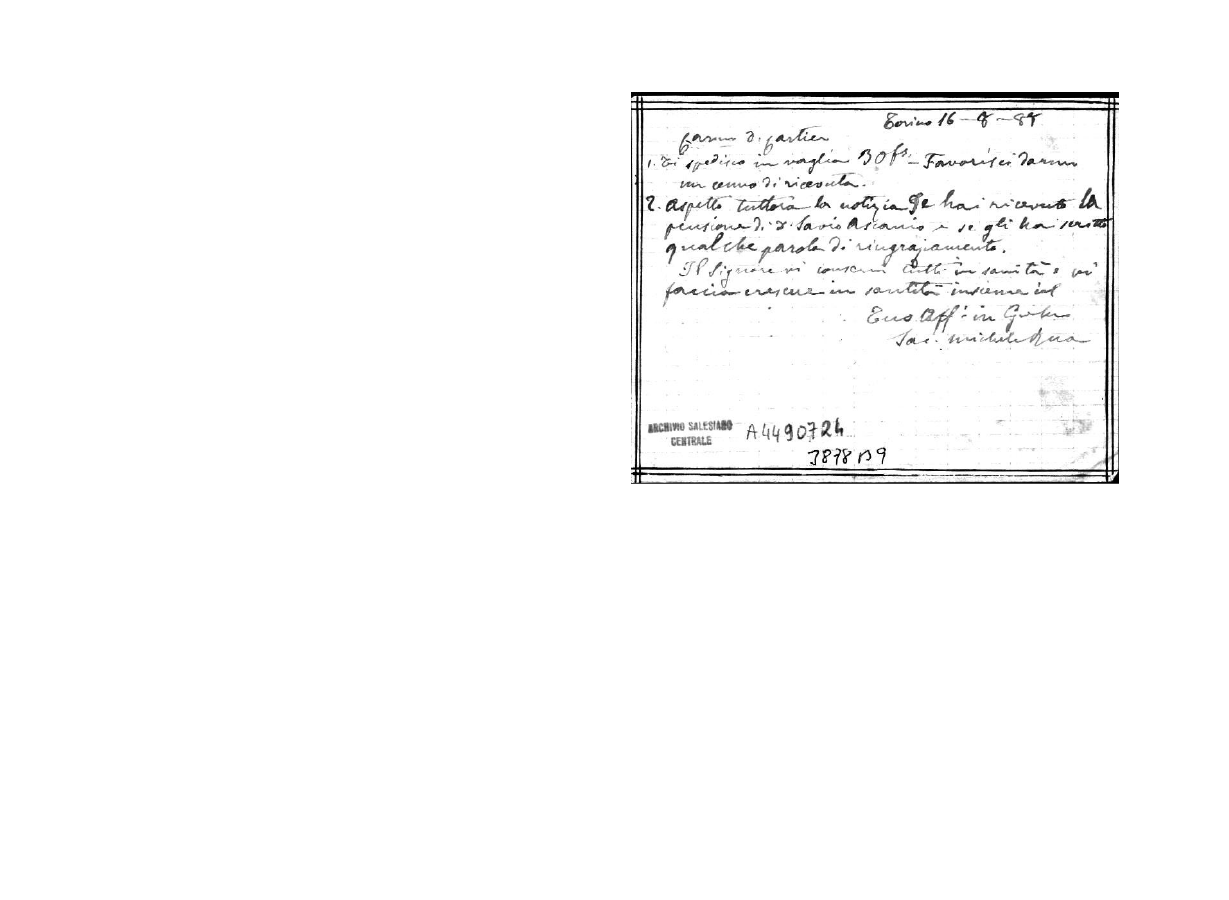 Torino 16-8-88
Carmo D. Cartier
1. Ti spedisco in vaglia 30 fs. - Favorisci darmi
un cenno di ricevuta.
2. Aspetto tuttora la notizia se hai ricevuto la
pensione di D. Savio Ascanio e se gli hai scritto
qualche parola di ringraziamento.
Il Signore vi conservi tutti in sanità e vi
faccia crescere in santità insieme col
Tuo Aff. in G.
Sac. Michele Rua
ARCHIVIO SALESIANO
CENTRALE
A4490724
3878 B9